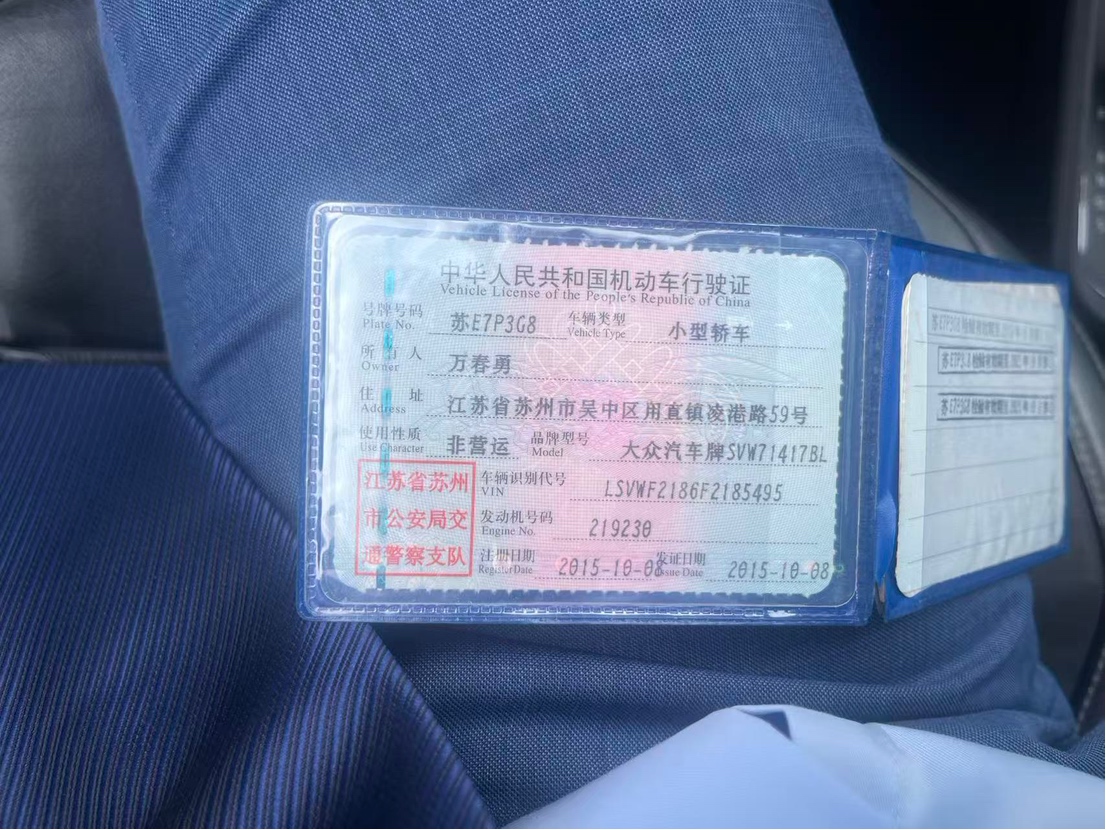 中华人民共和国机动车行驶证
Vehicle License of the People's Republic of China
号牌号码 Plate No. 苏E7P3G8 车辆类型 Vehicle Type 小型轿车
所有人 Owner 万春勇
住址 Address 江苏省苏州市吴中区用直镇凌港路59号
使用性质 Use Character 非营运 品牌型号 Model 大众汽车牌SVW71417BL
车辆识别代号 VIN LSVWF2186F2185495
发动机号码 Engine No. 219230
注册日期 Register Date 2015-10-08 发证日期 Issue Date 2015-10-08
江苏省苏州
市公安局交
通警察支队